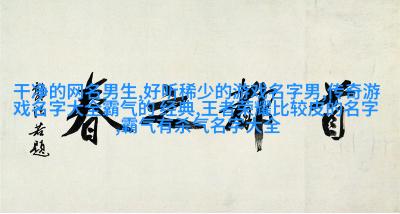 干净的网名男生,好听稀少的游戏名字男,传奇游
戏名字大全霸气的 经典,王者荣耀比较皮的名字
,霸气有杀气名字大全
首都之春
若題